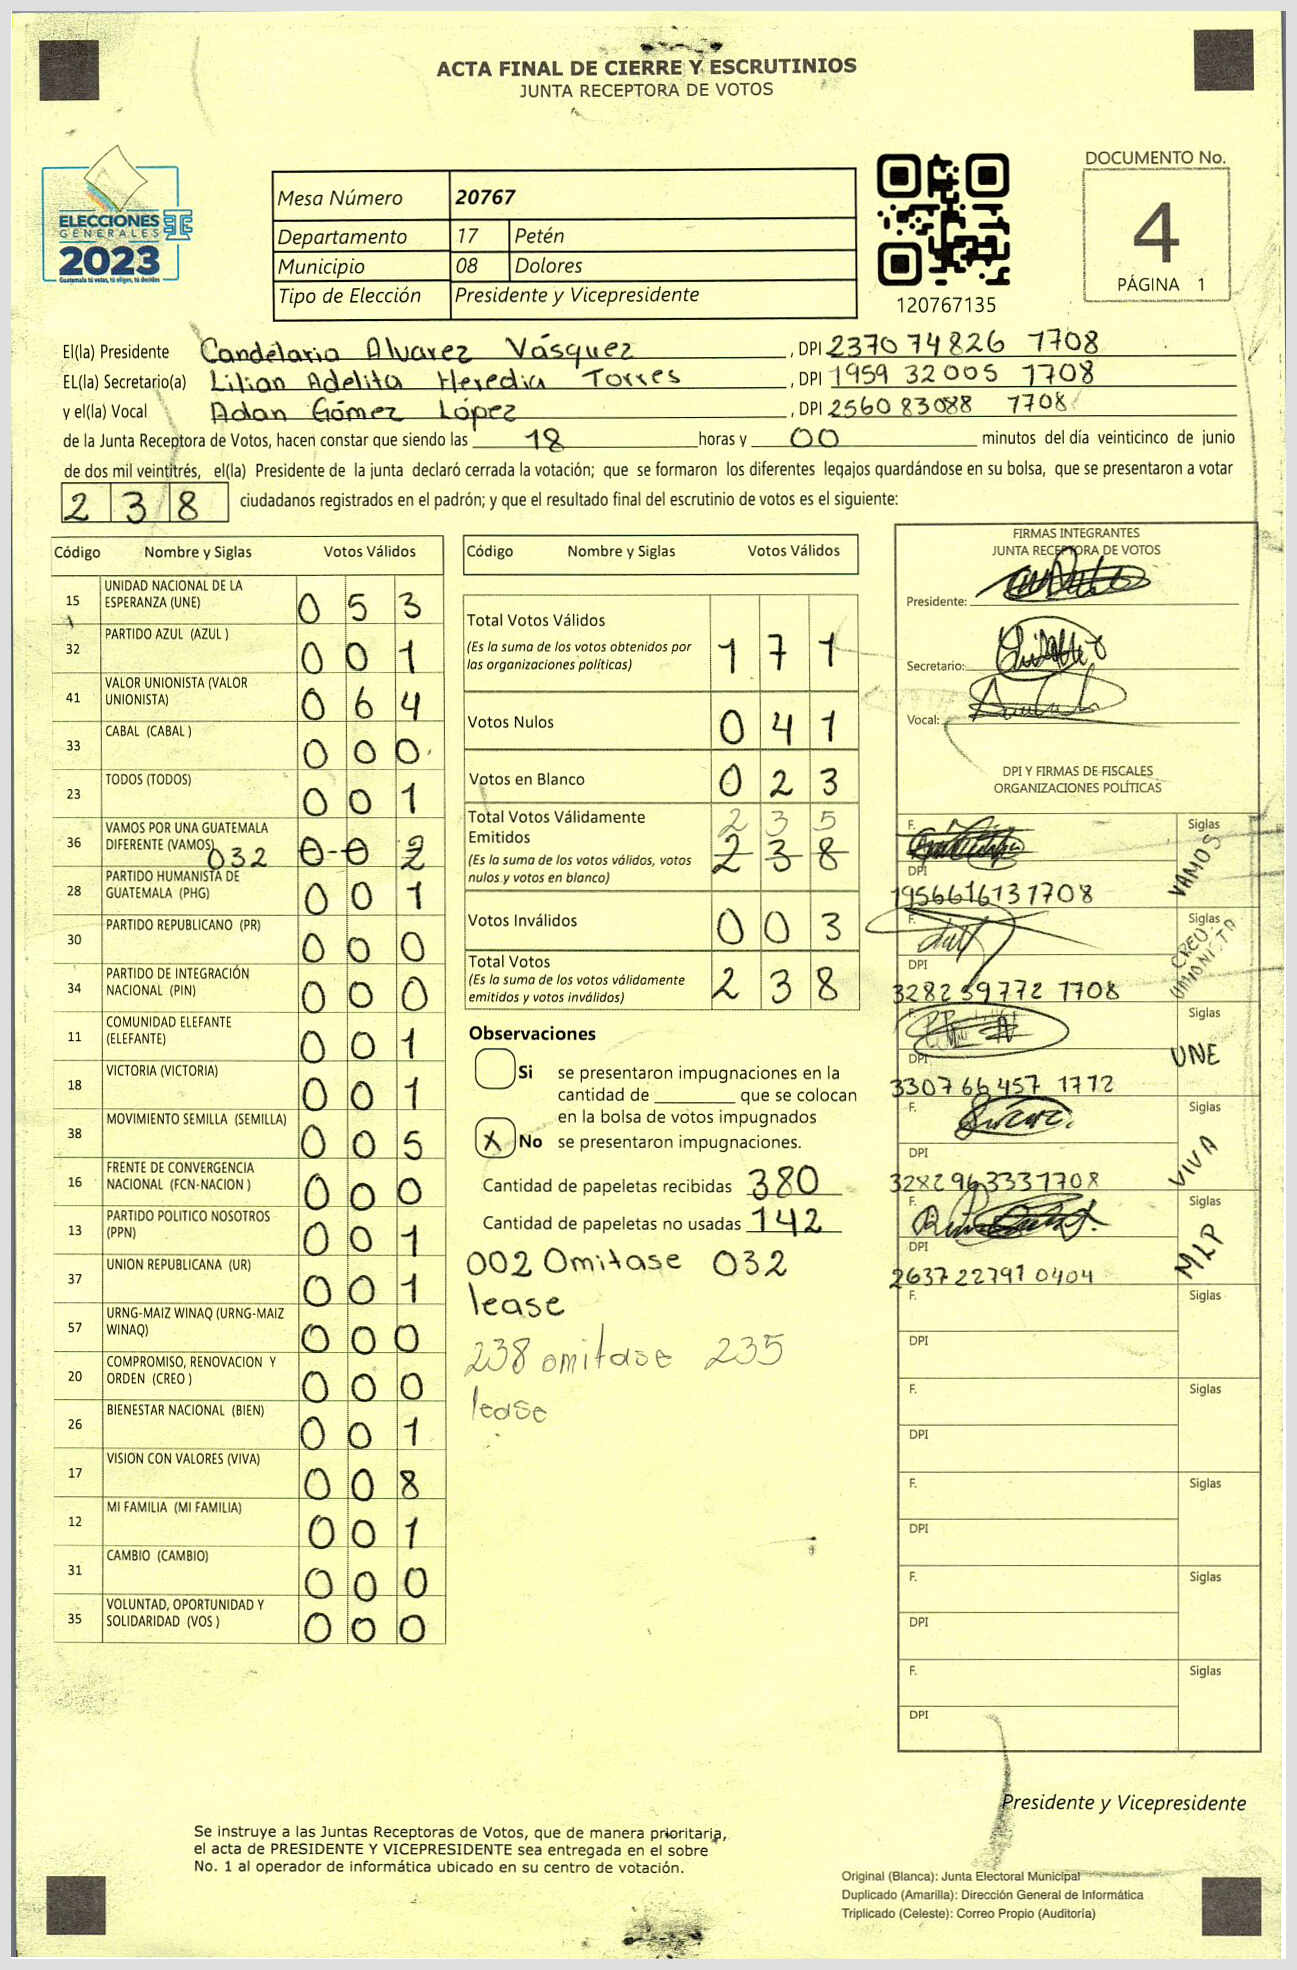 ACTA FINAL DE CIERRE Y ESCRUTINIOS
JUNTA RECEPTORA DE VOTOS
ELECCIONES
GENERALES
2023
Guatemala tú votas, tú eliges, tú decides
Mesa Número 20767
Departamento 17 Petén
Municipio 08 Dolores
Tipo de Elección Presidente y Vicepresidente
120767135
DOCUMENTO No.
4
PÁGINA 1
El(la) Presidente Candelaria Alvarez Vásquez, DPI 2370 74826 1708
EL(la) Secretario(a) Lilian Adelita Heredia Torres, DPI 1959 32005 1708
y el(la) Vocal Adan Gómez López, DPI 2560 83088 1708
de la Junta Receptora de Votos, hacen constar que siendo las 18 horas y 00 minutos del día veinticinco de junio
de dos mil veintitrés, el(la) Presidente de la junta declaró cerrada la votación; que se formaron los diferentes legajos quardándose en su bolsa, que se presentaron a votar
238 ciudadanos registrados en el padrón; y que el resultado final del escrutinio de votos es el siguiente:
Código Nombre y Siglas Votos Válidos
15 UNIDAD NACIONAL DE LA ESPERANZA (UNE) 0 5 3
32 PARTIDO AZUL (AZUL ) 0 0 1
41 VALOR UNIONISTA (VALOR UNIONISTA) 0 6 4
33 CABAL (CABAL ) 0 0 0
23 TODOS (TODOS) 0 0 1
36 VAMOS POR UNA GUATEMALA DIFERENTE (VAMOS) 032 0 0 2
28 PARTIDO HUMANISTA DE GUATEMALA (PHG) 0 0 1
30 PARTIDO REPUBLICANO (PR) 0 0 0
34 PARTIDO DE INTEGRACIÓN NACIONAL (PIN) 0 0 0
11 COMUNIDAD ELEFANTE (ELEFANTE) 0 0 1
18 VICTORIA (VICTORIA) 0 0 1
38 MOVIMIENTO SEMILLA (SEMILLA) 0 0 5
16 FRENTE DE CONVERGENCIA NACIONAL (FCN-NACION ) 0 0 0
13 PARTIDO POLITICO NOSOTROS (PPN) 0 0 1
37 UNION REPUBLICANA (UR) 0 0 1
57 URNG-MAIZ WINAQ (URNG-MAIZ WINAQ) 0 0 0
20 COMPROMISO, RENOVACION Y ORDEN (CREO ) 0 0 0
26 BIENESTAR NACIONAL (BIEN) 0 0 1
17 VISION CON VALORES (VIVA) 0 0 8
12 MI FAMILIA (MI FAMILIA) 0 0 1
31 CAMBIO (CAMBIO) 0 0 0
35 VOLUNTAD, OPORTUNIDAD Y SOLIDARIDAD (VOS ) 0 0 0
Código Nombre y Siglas Votos Válidos
Total Votos Válidos 1 7 1
(Es la suma de los votos obtenidos por
las organizaciones políticas)
Votos Nulos 0 4 1
Votos en Blanco 0 2 3
Total Votos Válidamente 2 3 5
Emitidos 2 3 8
(Es la suma de los votos válidos, votos
nulos y votos en blanco)
Votos Inválidos 0 0 3
Total Votos 2 3 8
(Es la suma de los votos válidamente
emitidos y votos inválidos)
Observaciones
Si se presentaron impugnaciones en la
cantidad de que se colocan
en la bolsa de votos impugnados
X No se presentaron impugnaciones.
Cantidad de papeletas recibidas 380
Cantidad de papeletas no usadas 142
002 Omitase 032
lease
238 omitase 235
lease
FIRMAS INTEGRANTES
JUNTA RECEPTORA DE VOTOS
Presidente:
Secretario:
Vocal:
DPI Y FIRMAS DE FISCALES
ORGANIZACIONES POLÍTICAS
F. Siglas VAMOS
DPI
1956616131708
F. Siglas CREO UNIONISTA
DPI
3282 59 772 1708
F. Siglas UNE
DPI
3307 66 457 1712
F. Siglas VIVA
DPI
3282 963331708
F. Siglas MLP
DPI
2637 22791 0404
F. Siglas
DPI
F. Siglas
DPI
F. Siglas
DPI
F. Siglas
DPI
F. Siglas
DPI
Presidente y Vicepresidente
Se instruye a las Juntas Receptoras de Votos, que de manera prioritaria,
el acta de PRESIDENTE Y VICEPRESIDENTE sea entregada en el sobre
No. 1 al operador de informática ubicado en su centro de votación.
Original (Blanca): Junta Electoral Municipal
Duplicado (Amarilla): Dirección General de Informática
Triplicado (Celeste): Correo Propio (Auditoría)